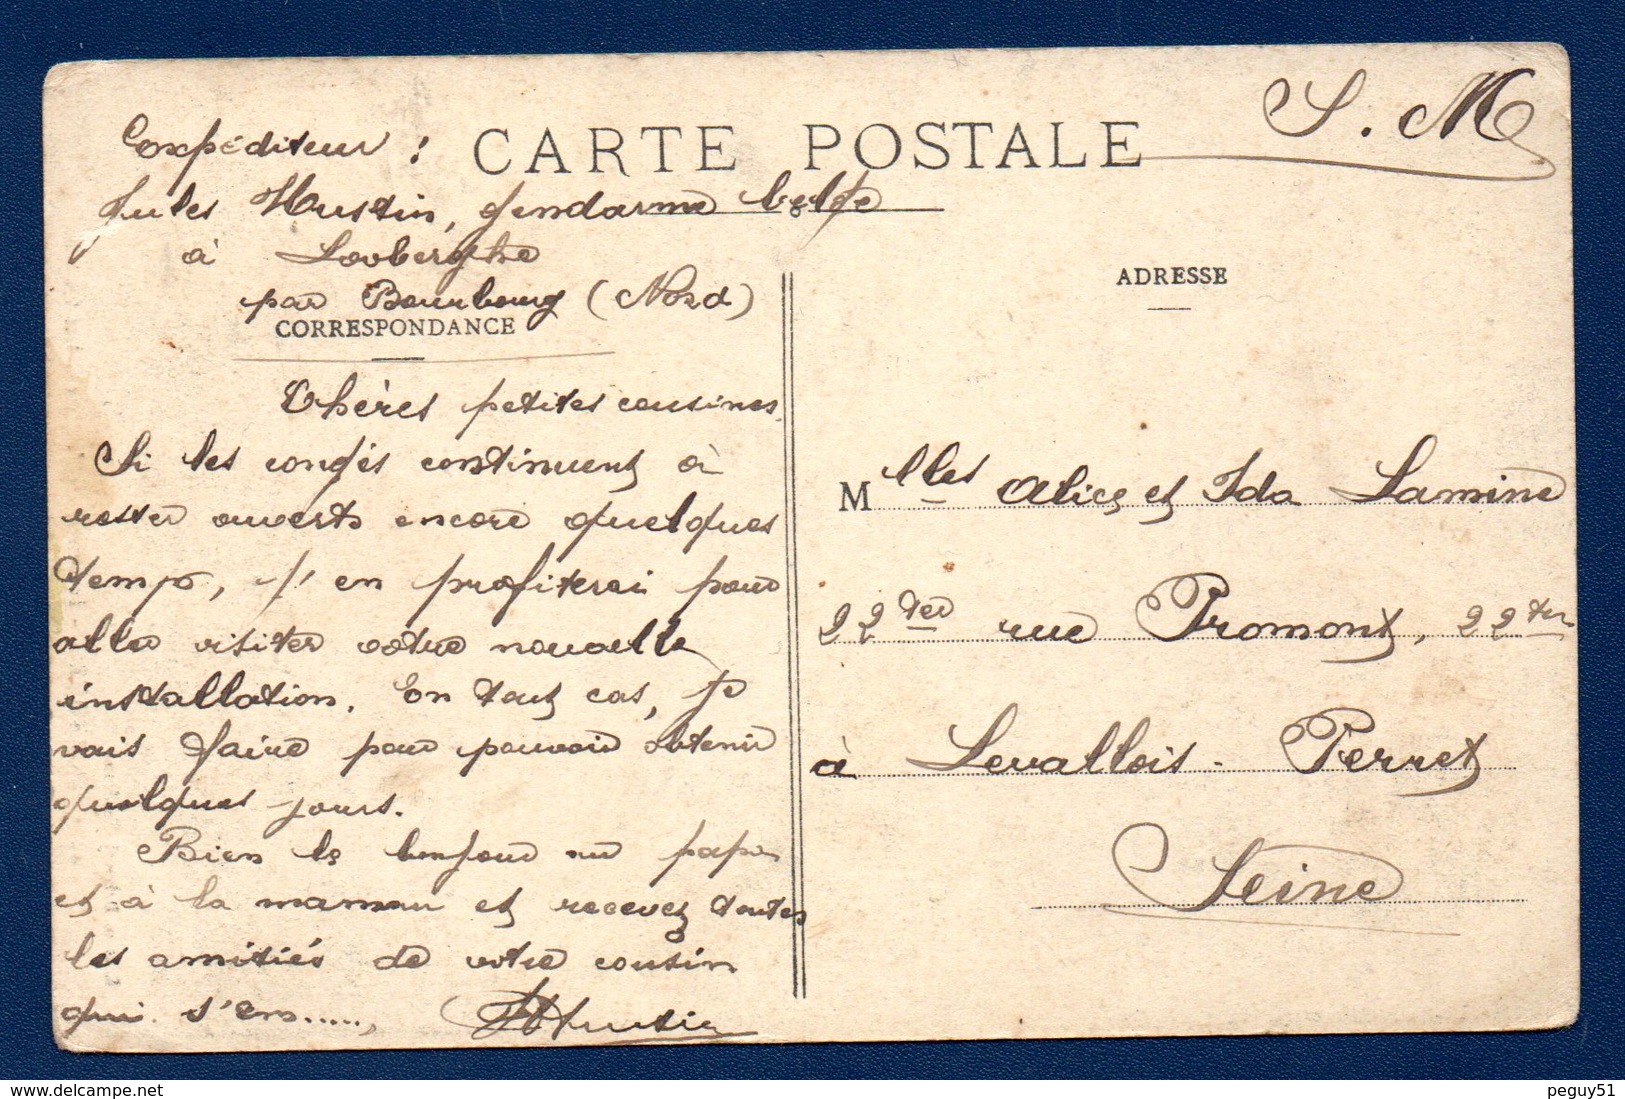 S. M
Expéditeur :
CARTE POSTALE
Jules Hustin, gendarme belge
à Looberghe
par Bourbourg (Nord)
CORRESPONDANCE
Chères petites cousines,
Si les congés continuent à
rester ouverts encore quelques
temps, j'en profiterai pour
aller visiter votre nouvelle
installation. En tout cas, je
vais faire pour pouvoir obtenir
quelques jours.
Bien le bonjour au papa
et à la maman et recevez toutes
les amitiés de votre cousin
qui s'en.....,
JHustin
ADRESSE
Mlles Alice et Ida Lamine
22 ter rue Fromont, 22 ter
à Levallois-Perret
Seine
peguy51